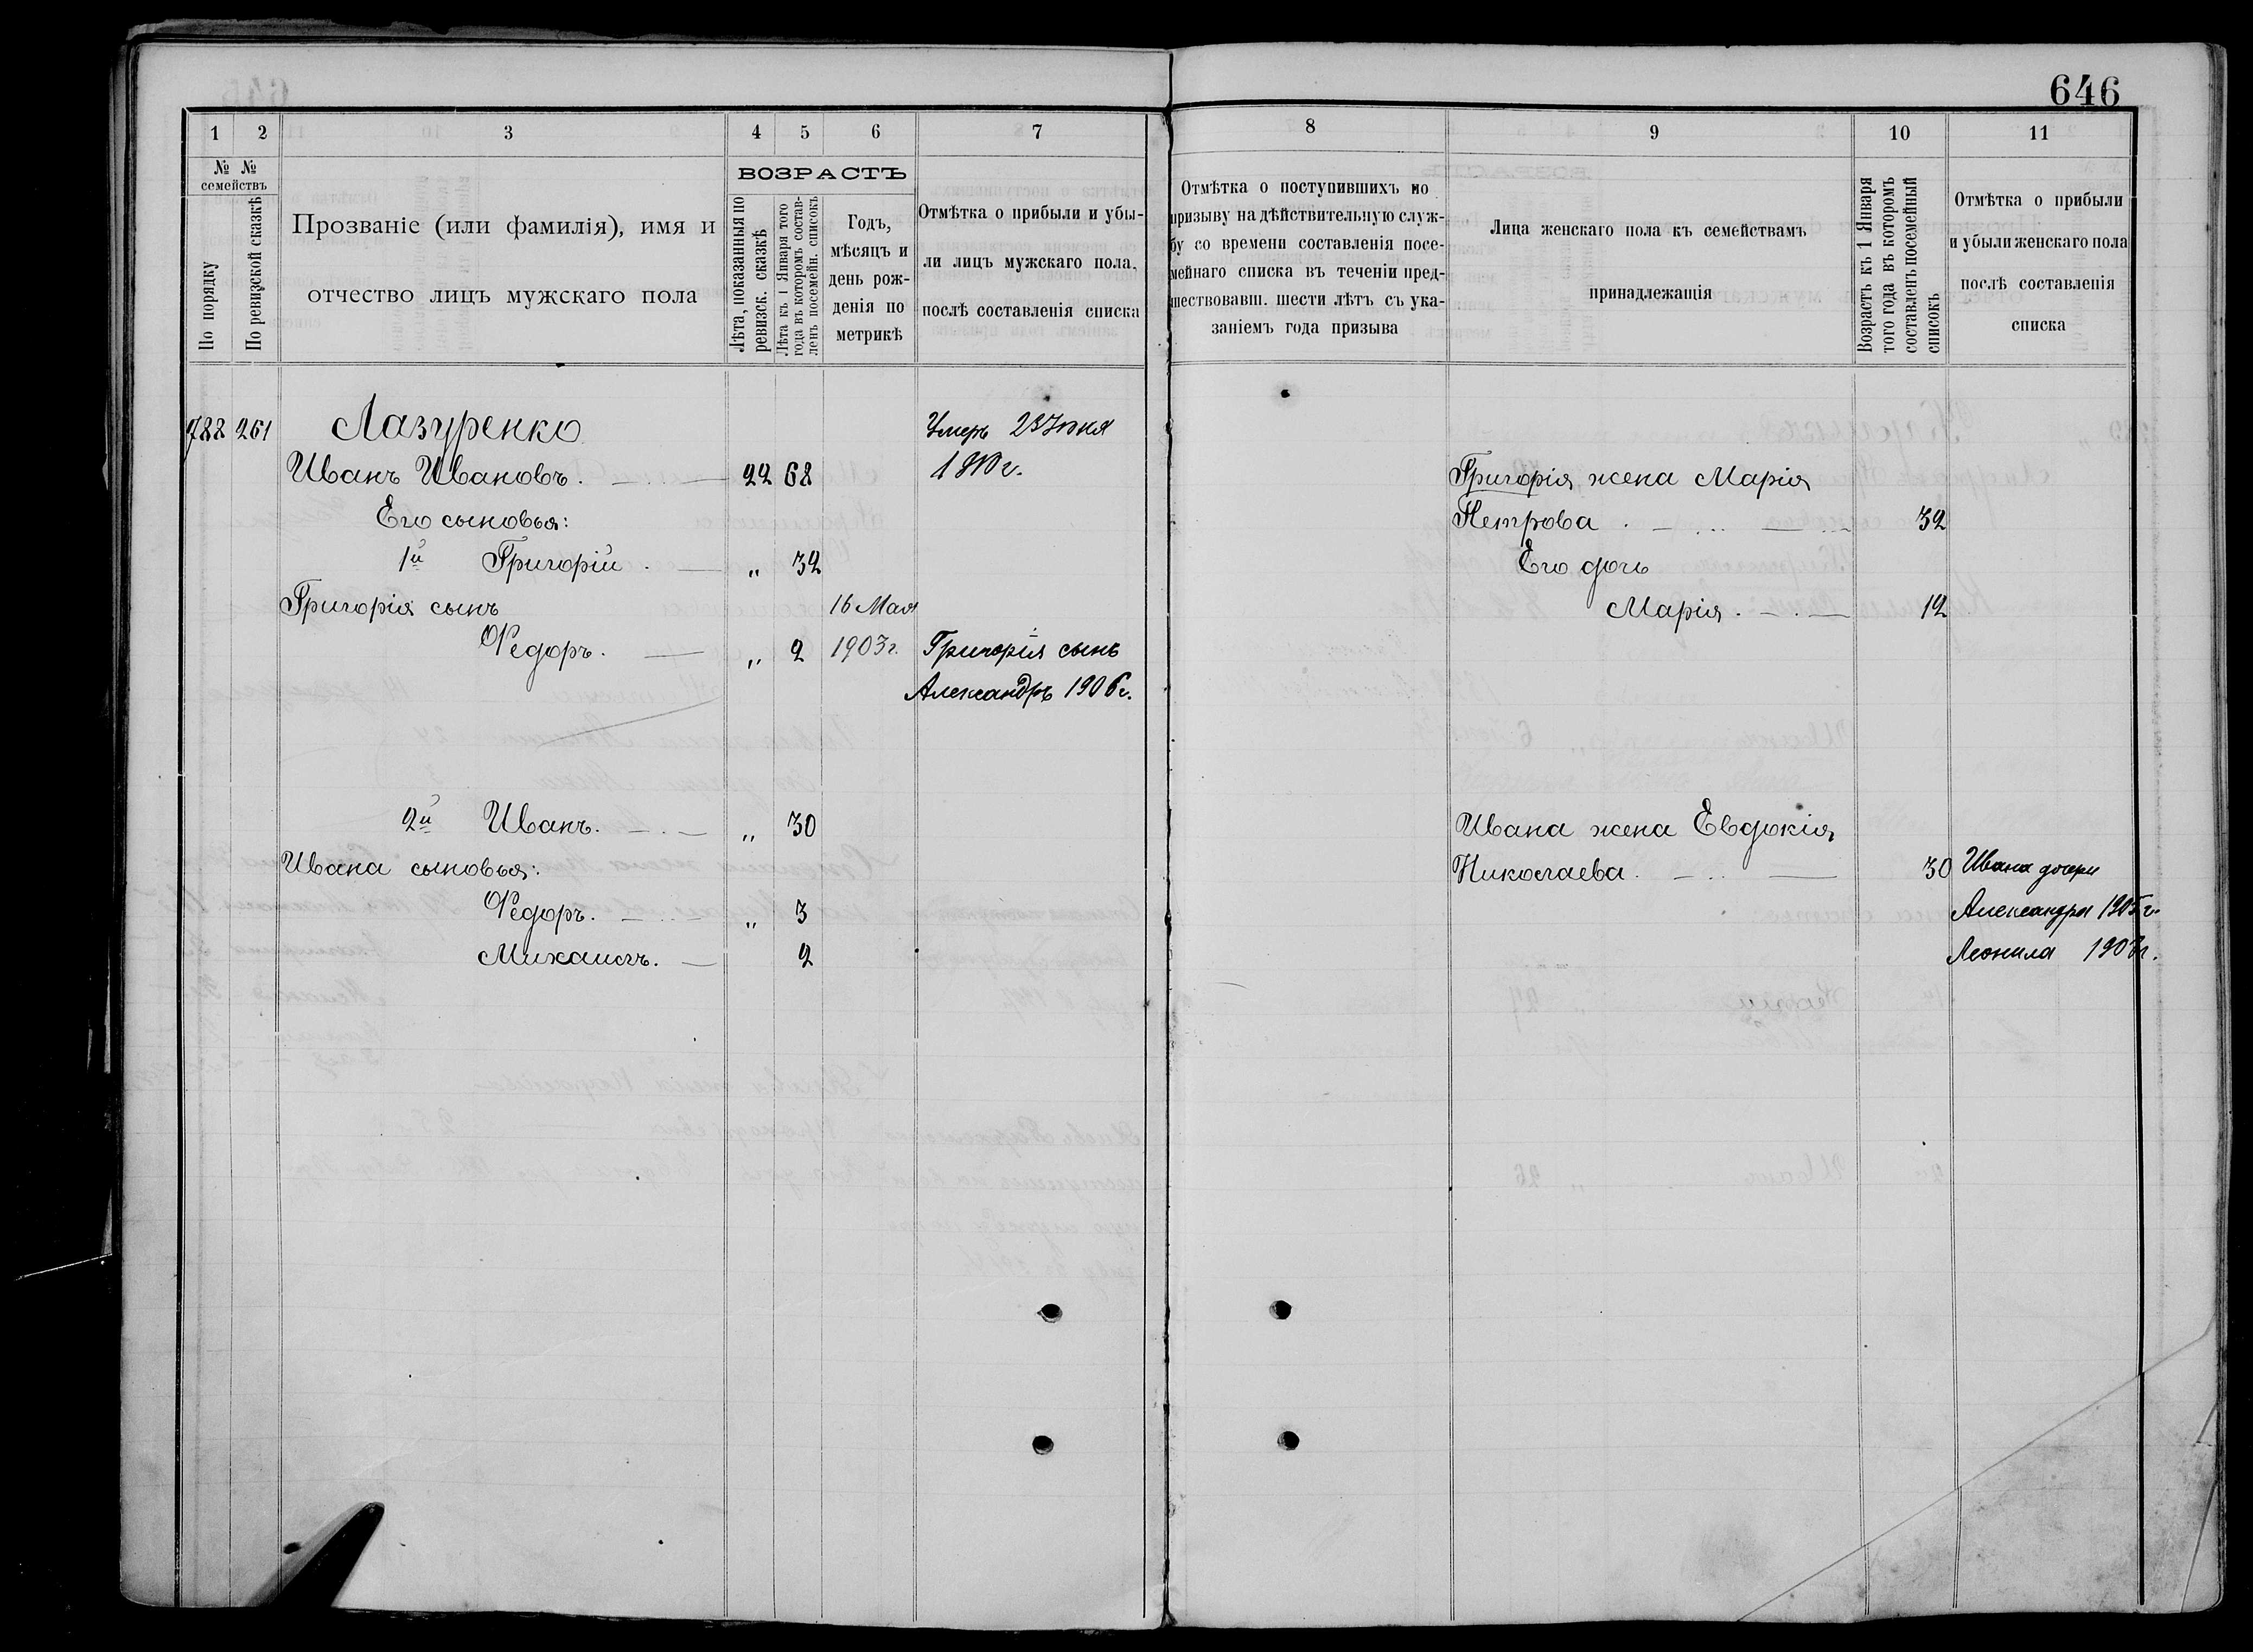 646
1 2 3 4 5 6 7
№ №
семействъ
По порядку
По ревизской сказкѣ
Прозваніе (или фамилія), имя и
отчество лицъ мужскаго пола
ВОЗРАСТЪ
Лѣта, показанныя по
ревизск. сказкѣ
Лѣта къ 1 Января того
года въ которомъ состав-
ленъ посемейн. списокъ
Годъ,
мѣсяцъ и
день рож-
денія по
метрикѣ
Отмѣтка о прибыли и убы-
ли лицъ мужскаго пола,
послѣ составленія списка
788 261 Лазуренко Умеръ 23 Іюня
Иванъ Ивановъ. 22 68
Его сыновья:
1й Григорій „ 32
Григорія сынъ 16 Мая
Федоръ. „ 2 1903г. Григорія сынъ
Александръ 1906г.
2й Иванъ. „ 30
Ивана сыновья:
Федоръ. „ 3
Михаилъ. 2
8 9 10 11
Отмѣтка о поступившихъ по
призыву на дѣйствительную служ-
бу со времени составленія посе-
мейнаго списка въ теченіи пред-
шествовавш. шести лѣтъ съ ука-
заніемъ года призыва
Лица женскаго пола къ семействамъ
принадлежащія
Возрастъ къ 1 Января
того года въ которомъ
составленъ посемейный
списокъ
Отмѣтка о прибыли
и убыли женскаго пола
послѣ составленія
списка
Григорія жена Марія
Петрова 32
Его дочь
Марія. 12
Ивана жена Евдокія
Николаева. 30 Ивана дочери
Александра 1905г.
Леонила